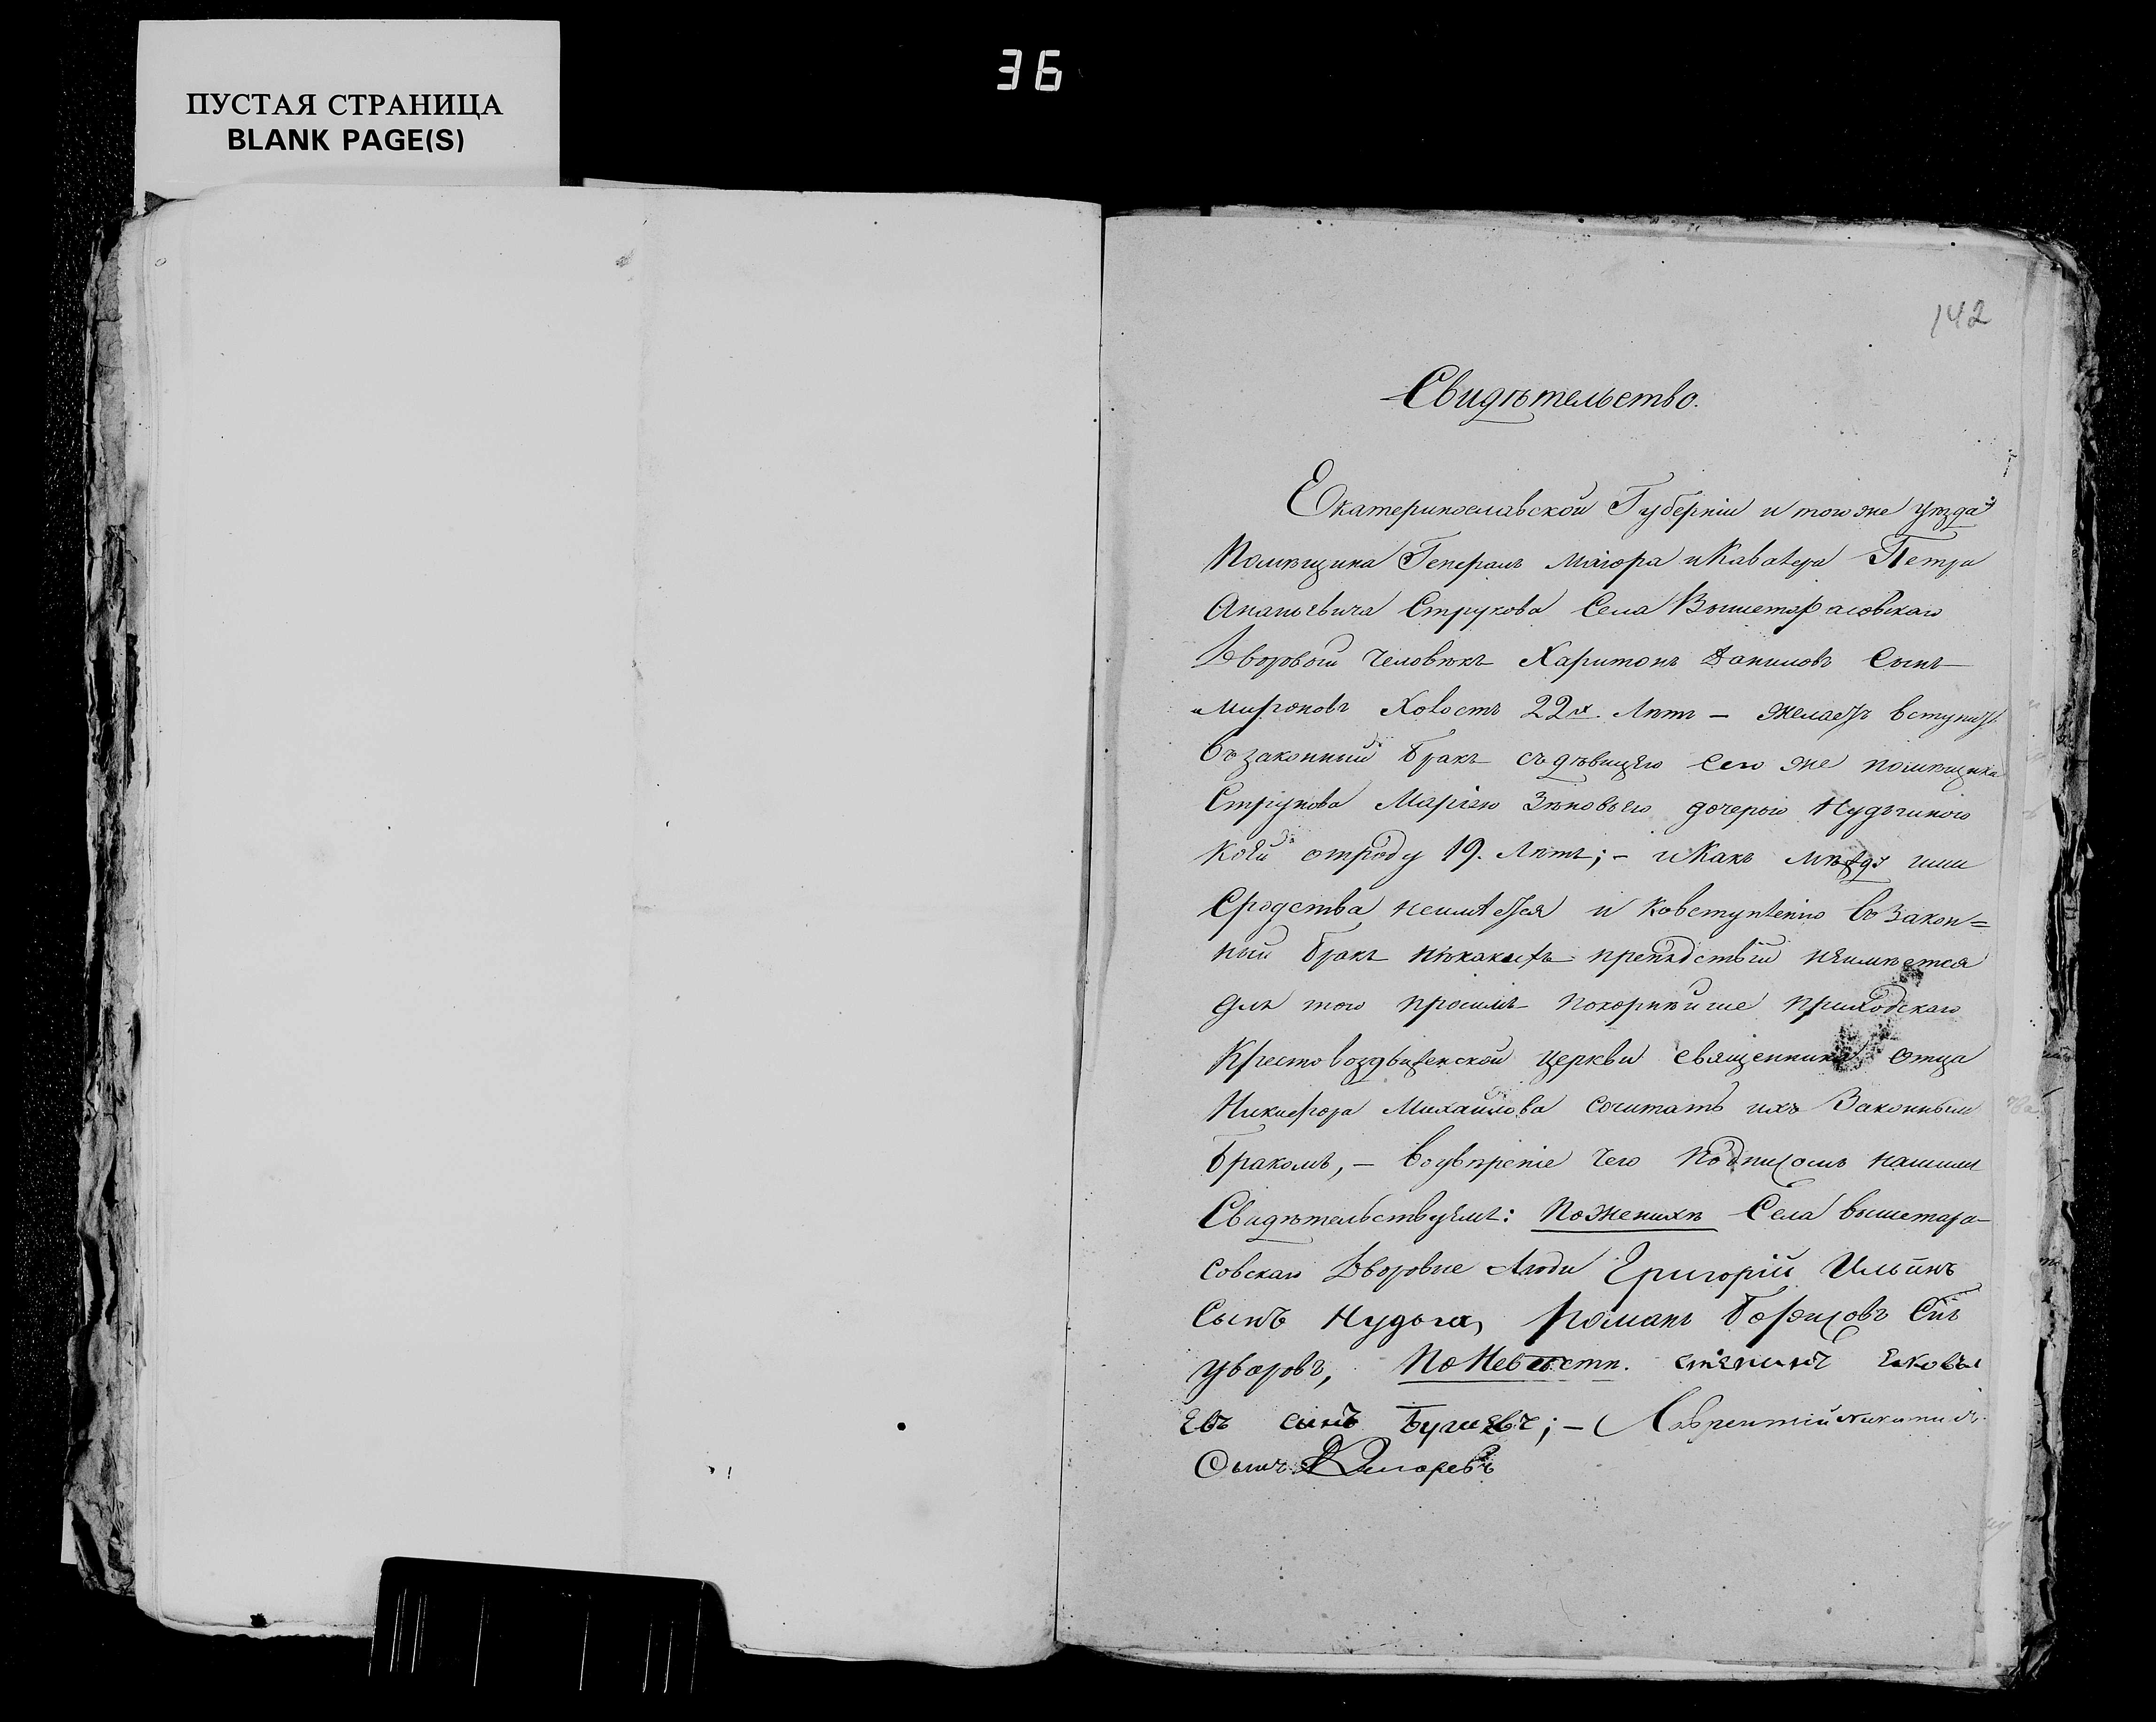 36
ПУСТАЯ СТРАНИЦА
BLANK PAGE(S)
142
Свидѣтельство.
Екатеринославской Губерніи и того же уѣзда
Помѣщика Генералъ Маіора и Кавалера Петра
Ананьевича Струкова Села Вышетарасовскаго
Дворовой Человѣкъ Харитонъ Даниловъ Сынъ
Мироновъ Холостъ 22х Лѣтъ – желаетъ вступить
въ законный бракъ съ дѣвицею сего же помѣщика
Струкова Маріею Зѣновьею дочерью Нудьгиною
коей отроду 19. Лѣтъ; – и Какъ между ими
Сродства неимѣется и ковступленію въ Закон=
ный бракъ нѣкакихъ препядствій неимѣется
для того просимъ покорнѣйше приходскаго
Крестовоздвиженской церкви священника Отца
Никифора Михайлова сочитать ихъ Законнымъ
бракомъ, – воувѣреніе чего подписомъ нашимъ
Свидѣтельствуемъ: По женихѣ Села вышетара-
совскаго Дворовые Люди Григорій Ильинъ
Сынъ Нудьга, Романъ Борисовъ Снъ
Уваровъ, По Невѣстѣ.
евъ сынъ; – Лаврентій Никитинъ
Сынъ